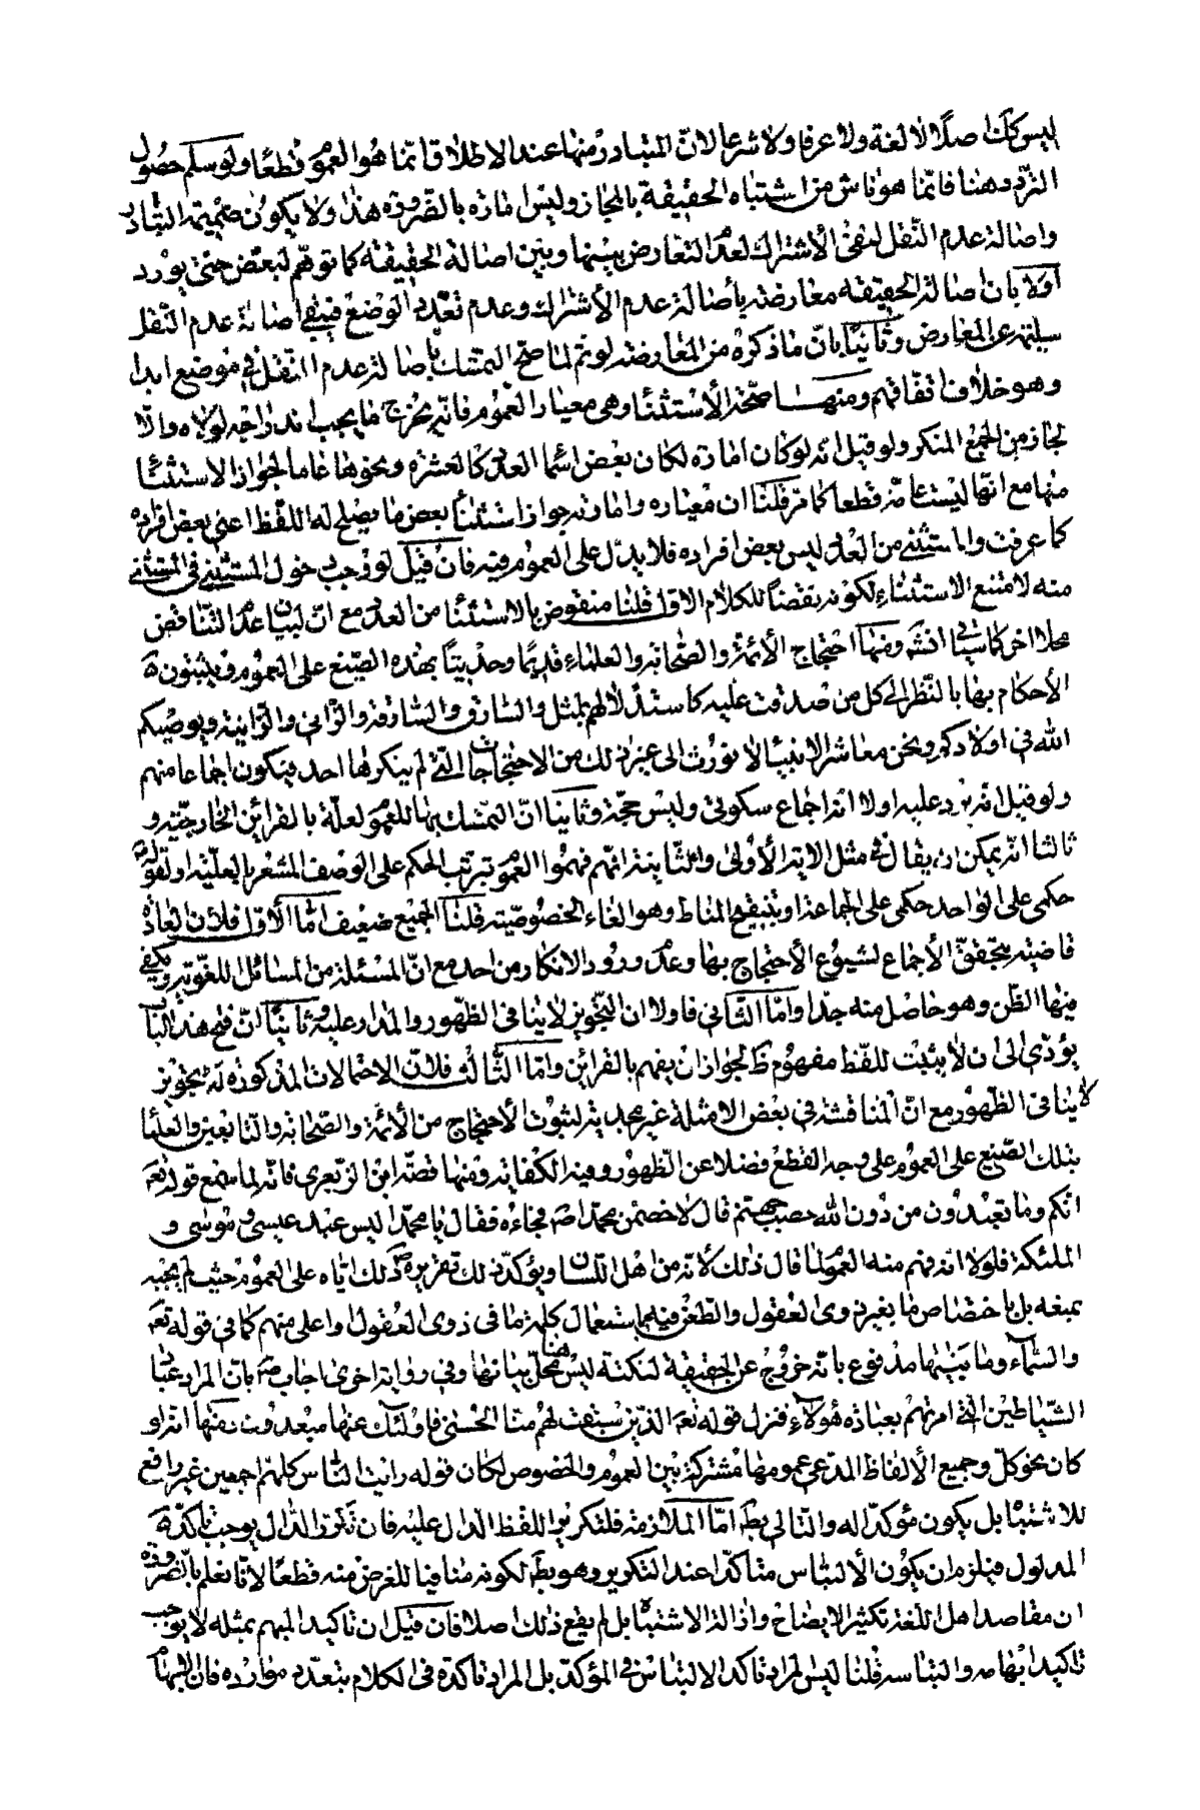 ليس كك اصلا لا لغة ولا عرفا ولا شرعا لان المتبادر منها عند الاطلاق انما هو العموم قطعا ولو سلم حصول
التردد هنا فانما هو ناش من اشتباه الحقيقة بالمجاز وليس امارة بالضرورة هذا ولا يكون ضميمة التبادر
واصالة عدم النقل لنفى الاشتراك لعدم التعارض بينها وبين اصالة الحقيقة كما توهم لبعض حتى يورد
اولا بان اصالة الحقيقة معارضة باصالة عدم الاشتراك وعدم تعدد الوضع فيبقى اصالة عدم النقل
سليمة عن المعارض وثانيا بان ما ذكره من المعارضة لو تم لما صح التمسك باصالة عدم النقل في موضع ابدا
وهو خلاف اتفاقهم ومنها صحة الاستثناء وهى معيار العموم فانه يخرج ما يجب اندراجه لولاه والا
لجاز من الجمع المنكر ولو قيل انه لو كان امارة لكان بعض اسماء العدد كالعشرة ونحوها عاما لجواز الاستثناء
منها مع انها ليست عامة قطعا كما مر قلنا ان معياره وامارته جواز استثناء بعض ما يصلح له اللفظ اعنى بعض افراده
كما عرفت والمستثنى من العدد ليس بعض افراده فلا يدل على العموم فيه فان قيل لو وجب دخول المستثنى فى المستثنى
منه لامتنع الاستثناء لكونه نقضا للكلام الاول قلنا منقوض بالاستثناء من العدد مع ان لبيان عدم التناقض
محلا اخر كما سياتي انشه ومنها احتجاج الأئمة والصحابة والعلماء قديما وحديثا بهذه الصيغ على العموم ويثبتون
الأحكام بها بالنظر الى كل من صدقت عليه كاستدلالهم بمثل والسارق والسارقة والزاني والزانية ويوصيكم
الله في اولادكم ونحن معاشر الانبياء لا نورث الى غير ذلك من الاحتجاجات التى لم ينكرها احد فيكون اجماعا منهم
ولو قيل انه يرد عليه اولا انه اجماع سكوتى وليس حجة وثانيا ان التمسك بها للعموم لعله بالقرائن الخارجية و
ثالثا انه يمكن ان يقال في مثل الاية الأولى والثانية انهم فهموا العموم بترتب الحكم على الوصف المشعر بالعلية او لقوله
حكمى على الواحد حكمى على الجماعة او بتنقيح المناط وهو الغاء الخصوصية قلنا الجميع ضعيف اما الاول فلان العادة
قاضية بتحقق الأجماع لشيوع الأحتجاج بها وعدم ورود الانكار من احد مع ان المسئلة من المسائل اللغوية ويكفى
فيها الظن وهو حاصل منه جدا واما الثانى فاولا ان التجويز لا ينافى الظهور والمدار عليه وثانيا ان فتح هذا الباب
يؤدى الى ان لا يثبت للفظ مفهوم ظ لجواز ان يفهم بالقرائن واما الثالث فلان الاحتمالات المذكورة تجويز
لا ينافى الظهور مع ان المناقشة في بعض الامثلة غير مجدية لثبوت الأحتجاج من الأئمة والصحابة والتابعين والعلماء
بتلك الصيغ على العموم على وجه القطع فضلا عن الظهور وفيه الكفاية ومنها قصة ابن الزبعرى فانه لما سمع قوله تعه
انكم وما تعبدون من دون الله حصب جهنم قال لاخصمن محمدا ص فجاءه فقال يا محمد اليس عبد عيسى وموسى و
الملئكة فلولا انه فهم منه العموم لما قال ذلك لأنه من اهل اللسان ويؤكد ذلك تقريره ص ذلك اياه على العموم حيث لم يجبه
بمنعه بل باختصاص ما بغير ذوى العقول والطعن فيه باستعمال كلمة ما فى ذوى العقول واعلى منهم كما في قوله تعه
والسماء وما بنيها مدفوع بانه خروج عن الحقيقة لنكتة ليس هنا محل بيانها وفي رواية اخرى اجاب ص بان المراد عبادة
الشياطين التى امرتهم بعبادة هؤلاء فنزل قوله تعه الذين سبقت لهم منا الحسنى فاولئك عنها مبعدون ومنها انه لو
كان نحو كل وجميع الألفاظ المدعى عمومها مشتركة بين العموم والخصوص لكان قوله رايت الناس كلهم اجمعين غير رافع
للاشتباه بل يكون مؤكدا له والتالى بط اما الملازمة فلتكرير اللفظ الدال عليه فان تكرر الدال يوجب تاكد
المدلول فيلزم ان يكون الألتباس متاكدا عند التكرير وهو بط لكونه منافيا للغرض منه قطعا لانا نعلم بالضرورة
ان مقاصد اهل اللغة تكثير الايضاح وازالة الاشتباه بل لم يقع ذلك اصلا فان قيل ان تاكيد المبهم بمثله لا يوجب
تاكيد ابهامه والتباسه قلنا ليس المراد تاكد الالتباس في المؤكد بل المراد تاكده فى الكلام بتعدد موارده فان الابهام